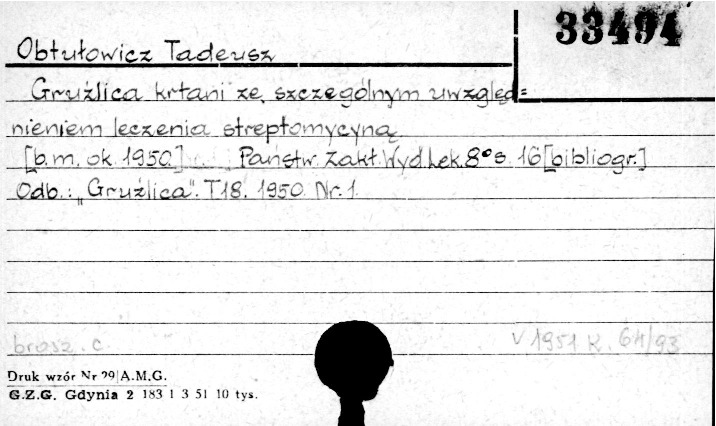 33494
Obtułowicz Tadeusz
Gruźlica krtani ze szczególnym uwzględ=
nieniem leczenia streptomycyną
[b.m. ok. 1950] Państw. Zakł. Wyd. Lek. 8° s. 16 [bibliogr.]
Odb.: „Gruźlica". T18. 1950. Nr. 1.
brosz. c. V 1951 K. 611/93
Druk wzór Nr 29 A.M.G.
G.Z.G. Gdynia 2 183 1 3 51 10 tys.